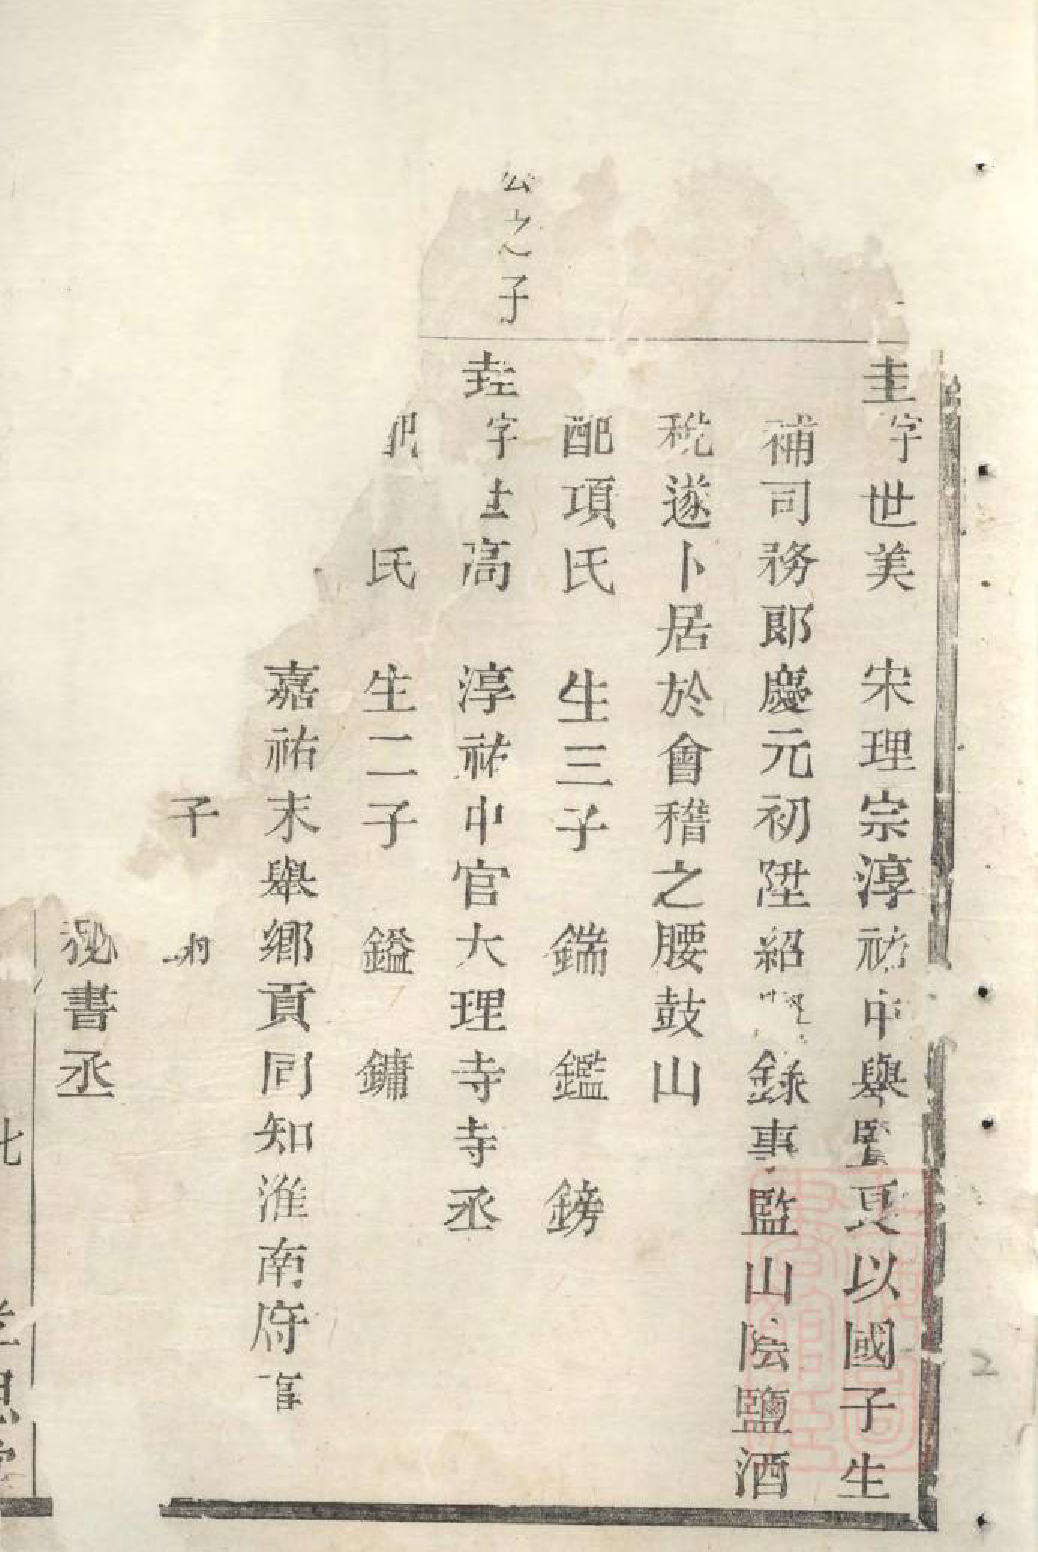 圭字世美　宋理宗淳祐中舉監以國子生
補司務郎慶元初陞紹錄事監山陰鹽酒
稅遂卜居於會稽之腰鼓山
配項氏　生三子　鍴　鑑　鎊
公之子
垚字世高　淳祐中官大理寺寺丞
配　氏　生二子　鎰　鏞
嘉祐末舉鄉貢同知淮南府事
子
秘書丞